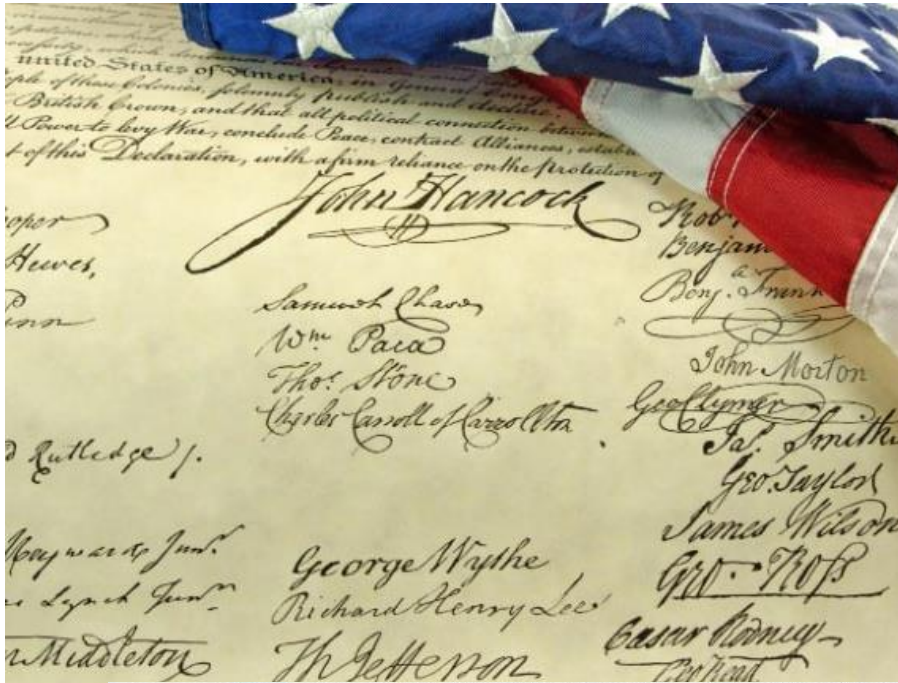 united States of America, in General
ple of these Colonies, solemnly publish and declare,
British Crown, and that all political connection between
l Power to levy War, conclude Peace, contract Alliances, establ
t of this Declaration, with a firm reliance on the protection of
John Hancock
ooper
Hewes,
Penn
d Rutledge /.
Heyward Junr.
s Lynch Junr.
r Middleton
Samuel Chase
Wm. Paca
Thos. Stone
Charles Carroll of Carrollton
George Wythe
Richard Henry Lee
Th Jefferson
Rob
Benjam
Benj. Frank
John Morton
Geo Clymer
Jas. Smith
Geo. Taylor
James Wilson
Geo. Ross
Caesar Rodney
Geo Read